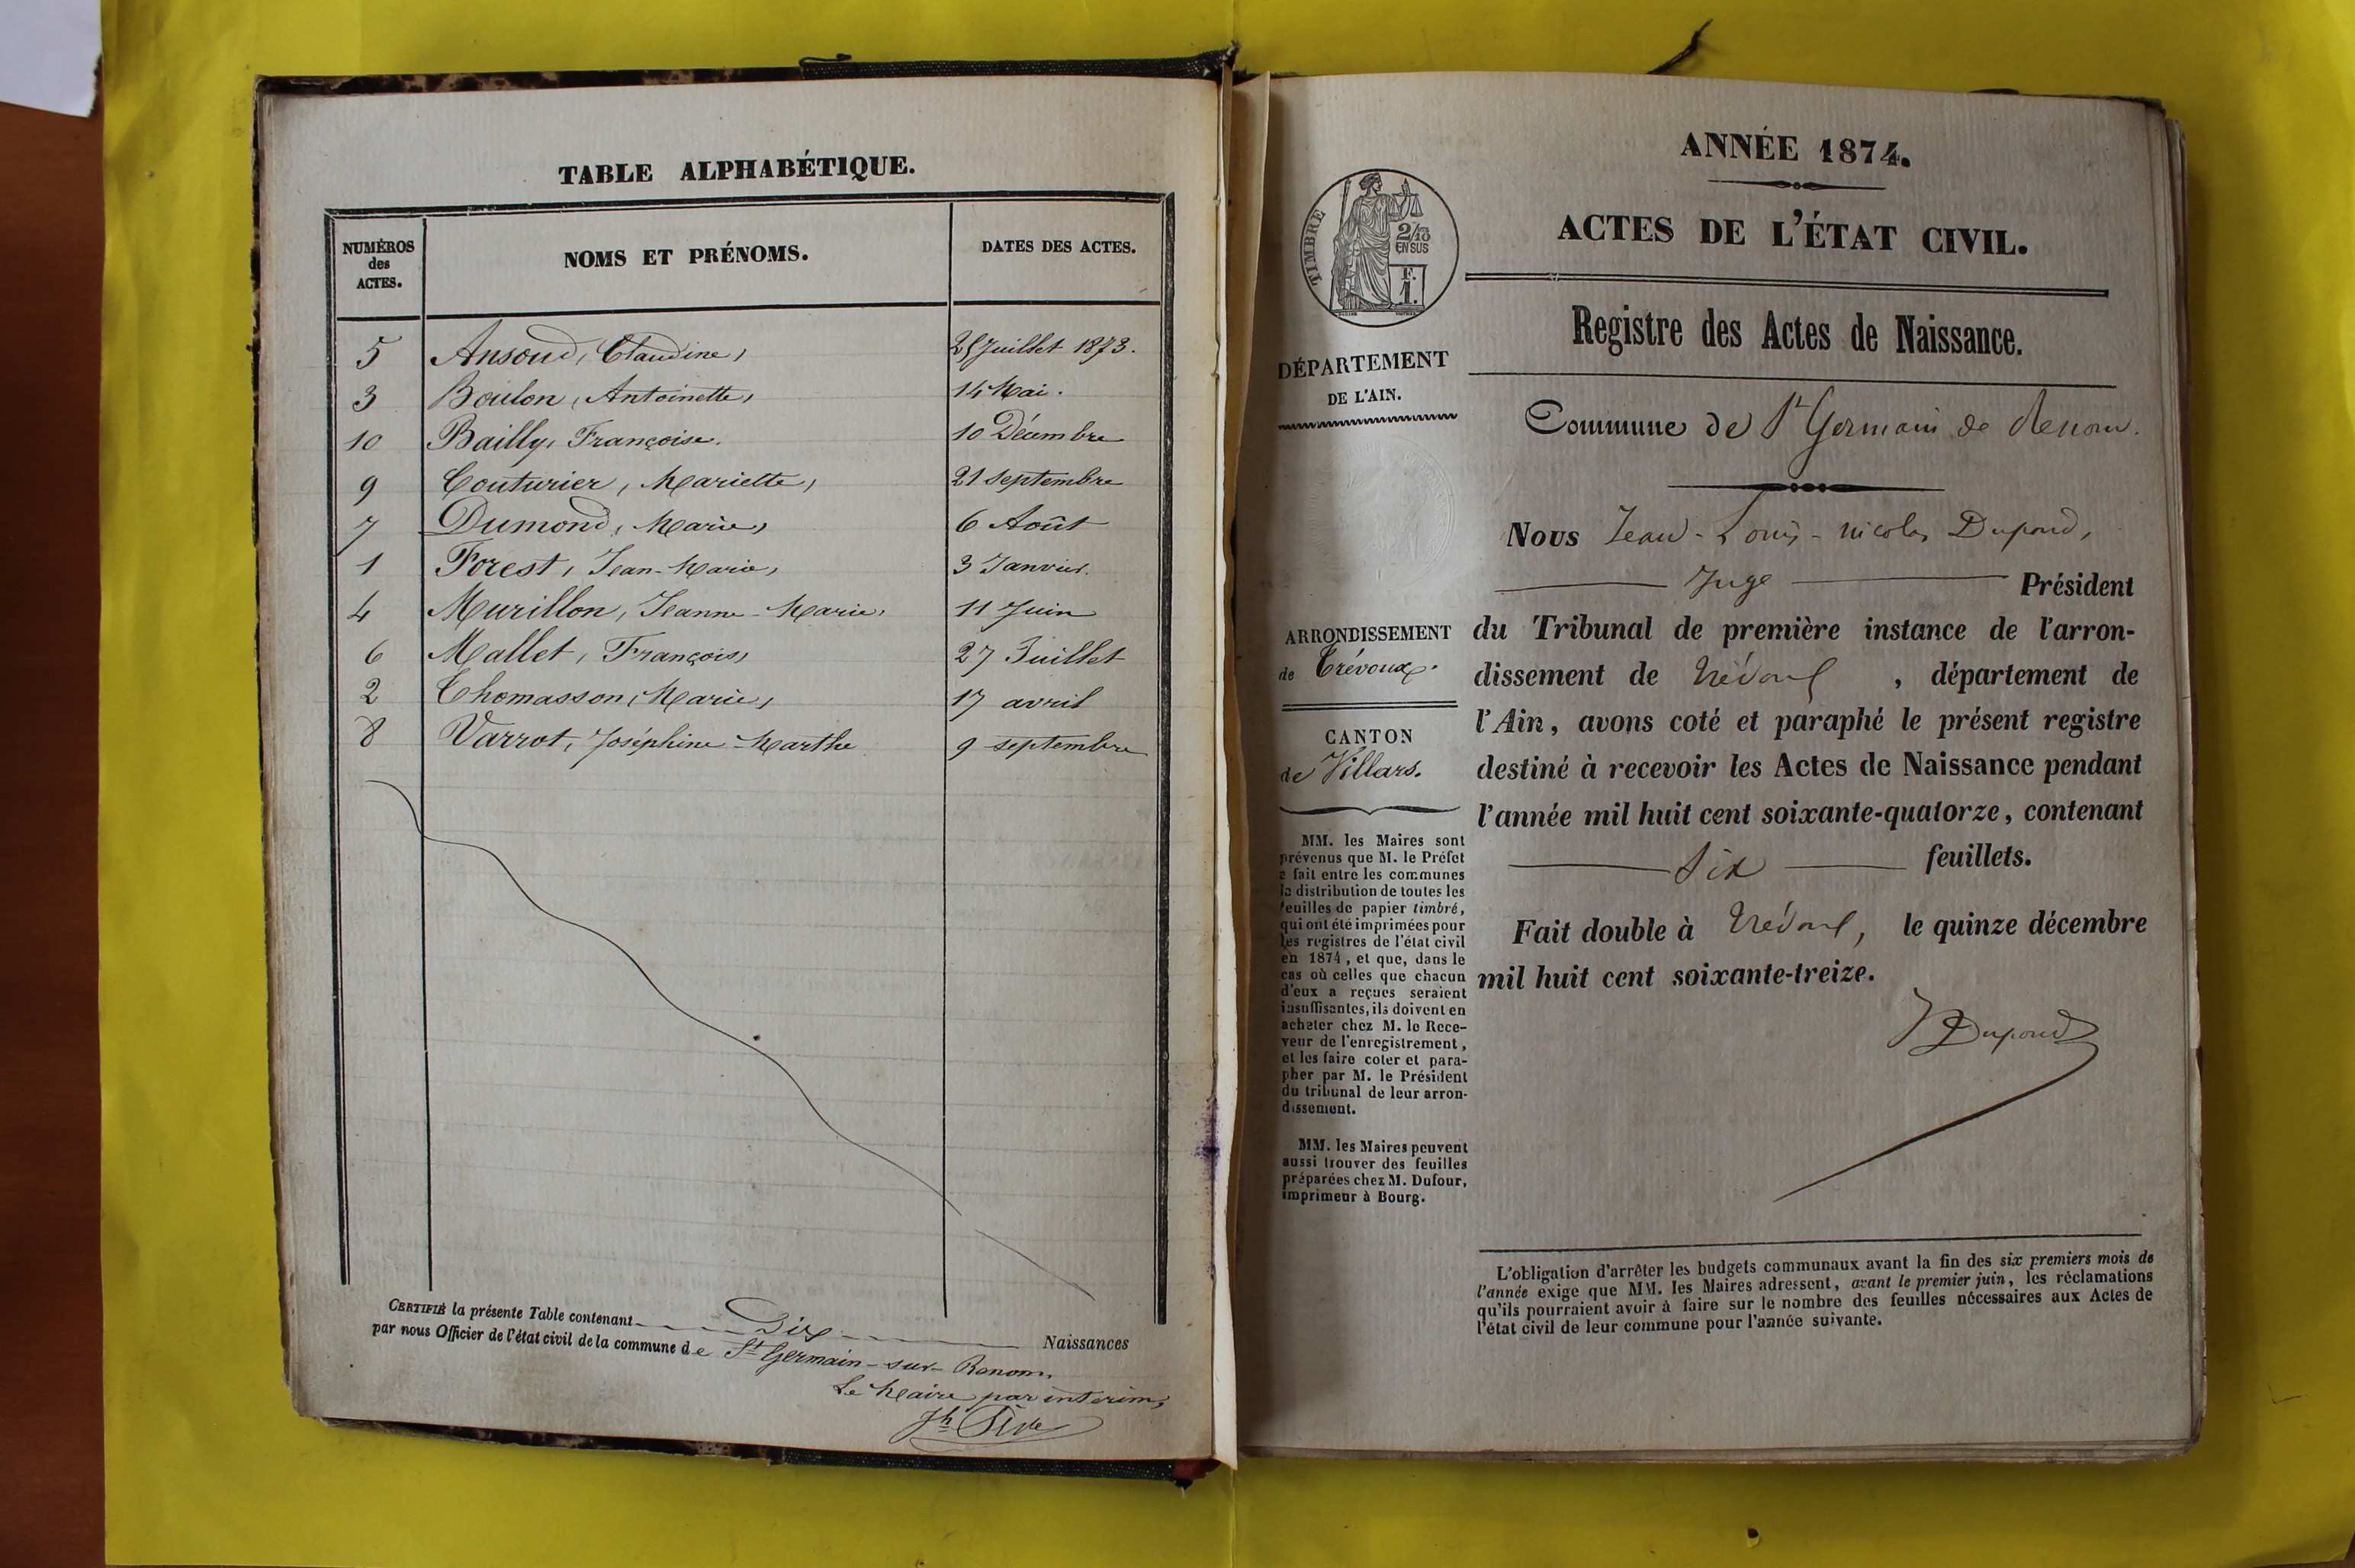 TABLE ALPHABÉTIQUE.
NUMÉROS des ACTES.
NOMS ET PRÉNOMS.
DATES DES ACTES.
5 Ansoud, Claudine, Juillet 1873.
3 Boulon, Antoinette, 14 Mai.
10 Bailly, Françoise. 10 Décembre
9 Couturier, Mariette, 21 septembre
7 Dumond, Marie, 6 Août
1 Forest, Jean-Marie, 3 Janvier.
4 Murillon, Jeanne-Marie, 11 Juin
6 Mallet, François, 27 Juillet
2 Thomasson, Marie, 17 avril
8 Varrot, Joséphine-Marthe 9 septembre
CERTIFIÉ la présente Table contenant Dix Naissances
par nous Officier de l'état civil de la commune de St Germain-sur-Renom,
Le Maire par interim,
Jh
ANNÉE 1874.
ACTES DE L'ÉTAT CIVIL.
Registre des Actes de Naissance.
TIMBRE
2/10
EN SUS
F.
1.
DÉPARTEMENT
DE L'AIN.
ARRONDISSEMENT
de Trévoux.
CANTON
de Villars.
MM. les Maires sont
prévenus que M. le Préfet
a fait entre les communes
la distribution de toutes les
feuilles de papier timbré,
qui ont été imprimées pour
les registres de l'état civil
en 1874, et que, dans le
cas où celles que chacun
d'eux a reçues seraient
insuffisantes, ils doivent en
acheter chez M. le Rece-
veur de l'enregistrement,
et les faire coter et para-
pher par M. le Président
du tribunal de leur arron-
dissement.
MM. les Maires peuvent
aussi trouver des feuilles
préparées chez M. Dufour,
imprimeur à Bourg.
Commune de St Germain de Renom.
Nous Jean-Louis-Nicolas Dupond,
Juge Président
du Tribunal de première instance de l'arron-
dissement de Trévoux, département de
l'Ain, avons coté et paraphé le présent registre
destiné à recevoir les Actes de Naissance pendant
l'année mil huit cent soixante-quatorze, contenant
Six feuillets.
Fait double à Trévoux, le quinze décembre
mil huit cent soixante-treize.
Dupond
L'obligation d'arrêter les budgets communaux avant la fin des six premiers mois de
l'année exige que MM. les Maires adressent, avant le premier juin, les réclamations
qu'ils pourraient avoir à faire sur le nombre des feuilles nécessaires aux Actes de
l'état civil de leur commune pour l'année suivante.